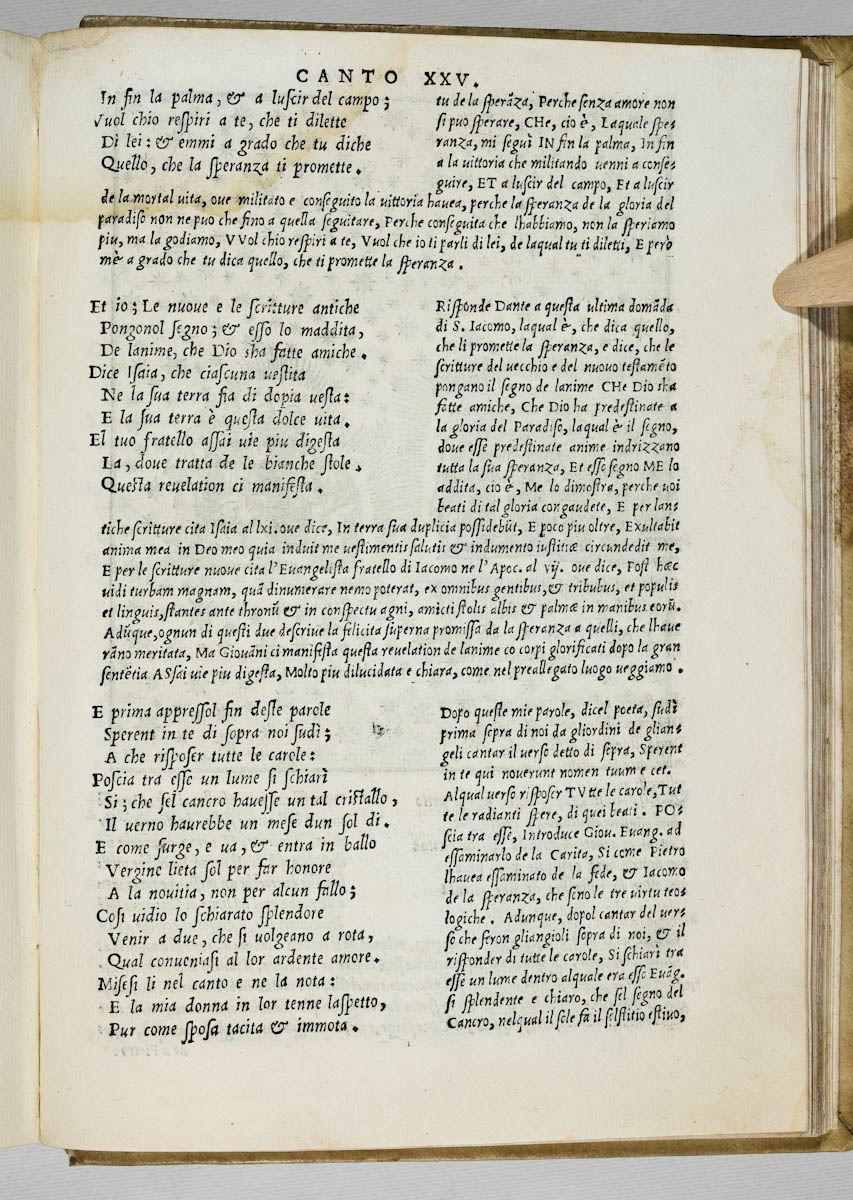 CANTO XXV.
In fin la palma, & a luscir del campo;
Vuol chio respiri a te, che ti dilette
Di lei: & emmi a grado che tu diche
Quello, che la speranza ti promette.
tu de la sperāza, Perche senza amore non
si puo sperare, CHe, cio è, Laquale spe-
ranza, mi seguì IN fin la palma, In fin
a la uittoria che militando uenni a conse-
guire, ET a luscir del campo, Et a luscir
de la mortal uita, oue militato e conseguito la uittoria hauea, perche la speranza de la gloria del
paradiso non ne puo che fino a quella seguitare, Perche conseguita che lhabbiamo, non la speriamo
piu, ma la godiamo, VVol chio respiri a te, Vuol che io ti parli di lei, de laqual tu ti diletti, E però
m'è a grado che tu dica quello, che ti promette la speranza.
Et io; Le nuoue e le scritture antiche
Pongonol segno; & esso lo maddita,
De lanime, che Dio sha fatte amiche.
Dice Isaia, che ciascuna uestita
Ne la sua terra fia di dopia uesta:
E la sua terra è questa dolce uita.
El tuo fratello assai uie piu digesta
La, doue tratta de le bianche stole,
Questa reuelation ci manifesta.
Risponde Dante a questa ultima domāda
di S. Iacomo, laqual è, che dica quello,
che li promette la speranza, e dice, che le
scritture del uecchio e del nuouo testamēto
pongano il segno de lanime CHe Dio sha
fatte amiche, Che Dio ha predestinate a
la gloria del Paradiso, laqual è il segno,
doue esse predestinate anime indrizzano
tutta la sua speranza, Et esso segno ME lo
addita, cio è, Me lo dimostra, perche uoi
beati di tal gloria congaudete, E per lan-
tiche scritture cita Isaia al lxi. oue dice, In terra sua duplicia possidebūt, E poco piu oltre, Exultabit
anima mea in Deo meo quia induit me uestimentis salutis & indumento iustitiæ circundedit me,
E per le scritture nuoue cita l'Euangelista fratello di Iacomo ne l'Apoc. al vij. oue dice, Post hæc
uidi turbam magnam, quā dinumerare nemo poterat, ex omnibus gentibus, & tribubus, et populis
et linguis, stantes ante thronū & in conspectu agni, amicti stolis albis & palmæ in manibus eorū.
Adūque, ognun di questi due descriue la felicita superna promissa da la speranza a quelli, che lhaue
rāno meritata, Ma Giouāni ci manifesta questa reuelation de lanime co corpi glorificati dopo la gran
sentētia ASsai uie piu digesta, Molto piu dilucidata e chiara, come nel preallegato luogo ueggiamo.
E prima appressol fin deste parole
Sperent in te di sopra noi sudì;
A che risposer tutte le carole:
Poscia tra esse un lume si schiarì
Si; che sel cancro hauesse un tal cristallo,
Il uerno haurebbe un mese dun sol di.
E come surge, e ua, & entra in ballo
Vergine lieta sol per far honore
A la nouitia, non per alcun fallo;
Cosi uidio lo schiarato splendore
Venir a due, che si uolgeano a rota,
Qual conueniasi al lor ardente amore.
Misesi li nel canto e ne la nota:
E la mia donna in lor tenne laspetto,
Pur come sposa tacita & immota.
Dopo queste mie parole, dicel poeta, sudì
prima sopra di noi da gliordini de glian-
geli cantar il uerso detto di sopra, Sperent
in te qui nouerunt nomen tuum e cet.
Alqual uerso risposer TVtte le carole, Tut
te le radianti spere, di quei beati. PO-
scia tra esse, Introduce Giou. Euang. ad
essaminarlo de la Carita, Si come Pietro
lhauea essaminato de la fede, & Iacomo
de la speranza, che sono le tre uirtu teo-
logiche. Adunque, dopol cantar del uer-
so che feron gliangioli sopra di noi, & il
risponder di tutte le carole, Si schiarì tra
esse un lume dentro alquale era esso Euāg.
si splendente e chiaro, che sel segno del
Cancro, nelqual il sole fa il solstitio estiuo,